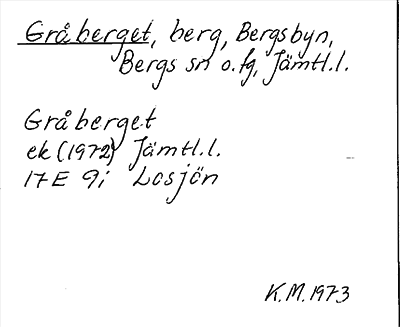 Gråberget, berg, Bergsbyn,
Bergs sn o. fg, Jämtl. l.
Gråberget
ek (1972) Jämtl. l.
17E 9i Losjön
K.M. 1973